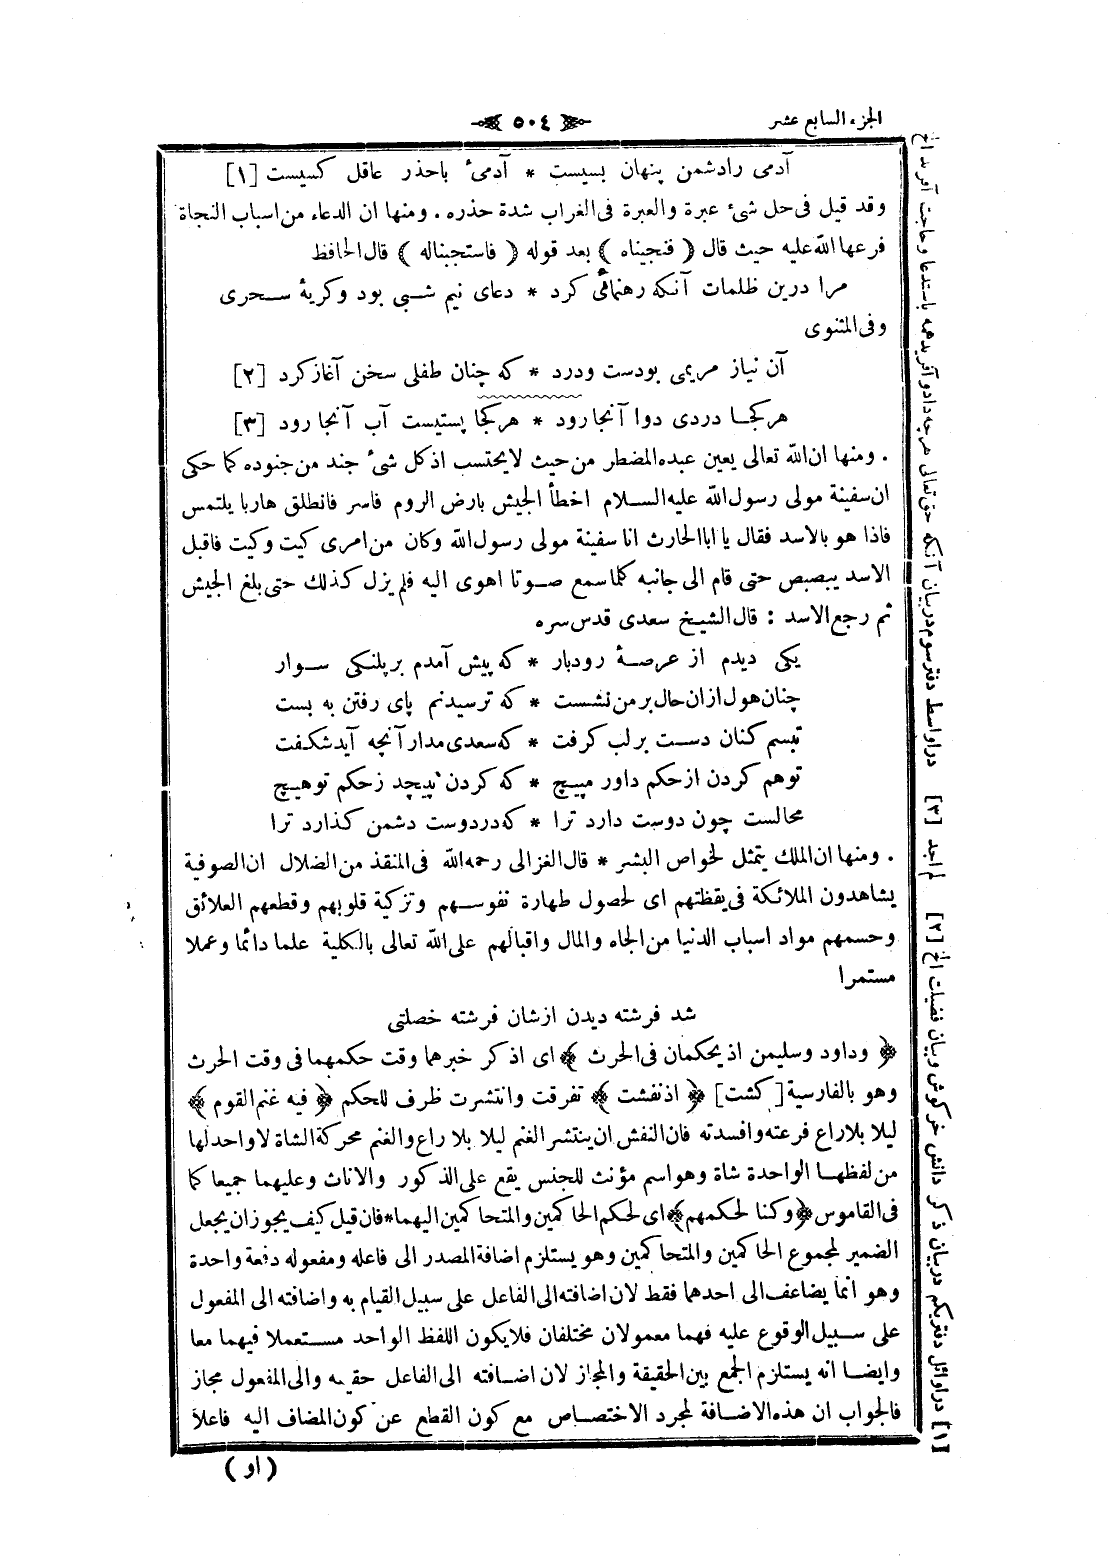 الجزء السابع عشر
٥٠٤
آدمی رادشمن پنهان بسیست * آدمیٔ باحذر عاقل کسیست [١]
وقد قيل فى حل شئ عبرة والعبرة فى الغراب شدة حذره . ومنها ان الدعاء من اسباب النجاة
فرعها الله عليه حيث قال ﴿ فنجيناه ﴾ بعد قوله ﴿ فاستجبناله ﴾ قال الحافظ
مرا درین ظلمات آنکه رهنمائی کرد * دعای نیم شبی بود وکریهٔ سحری
وفى المثنوى
آن نیاز مریمی بودست ودرد * که چنان طفلی سخن آغاز کرد [٢]
هرکجا دردی دوا آنجا رود * هرکجا پستیست آب آنجا رود [٣]
. ومنها ان الله تعالى يعين عبده المضطر من حيث لايحتسب اذ كل شئ جند من جنوده كما حكى
ان سفينة مولى رسول الله عليه السلام اخطأ الجيش بارض الروم فاسر فانطلق هاربا يلتمس
فاذا هو بالاسد فقال يا اباالحارث انا سفينة مولى رسول الله وكان من امرى كيت وكيت فاقبل
الاسد يبصبص حتى قام الى جانبه كلما سمع صوتا اهوى اليه فلم يزل كذلك حتى بلغ الجيش
ثم رجع الاسد : قال الشيخ سعدى قدس سره
یکی دیدم از عرصهٔ رودبار * که پیش آمدم بر پلنکی سوار
چنان هول ازان حال بر من نشست * که ترسیدنم پای رفتن به بست
تبسم کنان دست بر لب کرفت * که سعدی مدار آنچه آید شکفت
توهم کردن از حکم داور مپیچ * که کردن نپیچد زحکم توهیچ
محالست چون دوست دارد ترا * که دردست دشمن کذارد ترا
. ومنها ان الملك يتمثل لخواص البشر * قال الغزالى رحمه الله فى المنقذ من الضلال ان الصوفية
يشاهدون الملائكة فى يقظتهم اى لحصول طهارة نفوسهم وتزكية قلوبهم وقطعهم العلائق
وحسمهم مواد اسباب الدنيا من الجاه والمال واقبالهم على الله تعالى بالكلية علما دائما وعملا
مستمرا
شد فرشته دیدن ازشان فرشته خصلتی
﴿ وداود وسليمن اذ يحكمان فى الحرث ﴾ اى اذكر خبرهما وقت حكمهما فى وقت الحرث
وهو بالفارسية [ كشت ] ﴿ اذ نفشت ﴾ تفرقت وانتشرت ظرف للحكم ﴿ فيه غنم القوم ﴾
ليلا بلاراع فرعته وافسدته فان النفش ان ينتشر الغنم ليلا بلا راع والغنم محركة الشاة لاواحد لها
من لفظها الواحدة شاة وهو اسم مؤنث للجنس يقع على الذكور والاناث وعليهما جميعا كما
فى القاموس ﴿ وكنا لحكمهم ﴾ اى لحكم الحاكمين والمتحاكمين اليهما * فان قيل كيف يجوز ان يجعل
الضمير لمجموع الحاكمين والمتحاكمين وهو يستلزم اضافة المصدر الى فاعله ومفعوله دفعة واحدة
وهو انما يضاف الى احدهما فقط لان اضافته الى الفاعل على سبيل القيام به واضافته الى المفعول
على سبيل الوقوع عليه فهما معمولان مختلفان فلايكون اللفظ الواحد مستعملا فيهما معا
وايضا انه يستلزم الجمع بين الحقيقة والمجاز لان اضافته الى الفاعل حقيقة والى المفعول مجاز
فالجواب ان هذه الاضافة لمجرد الاختصاص مع كون القطع عن كون المضاف اليه فاعلا
( او )
[١] در اوائل دفتر یکم در بیان ذکر دانش خرکوش وبیان فضیلت الخ [٢] لم اجد [٣] در اواسط دفتر سوم در بیان آنکه حق تعالی هرچه داد وآفرید همه باستدعا وحاجت آفرید الخ